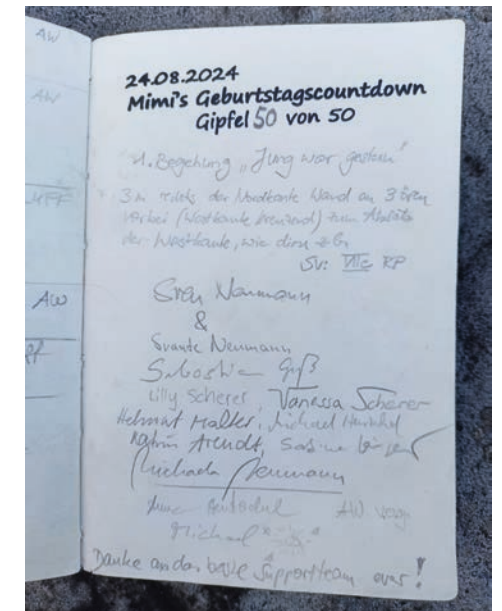 AW
AW
AW
24.08.2024
Mimi's Geburtstagscountdown
Gipfel 50 von 50
1. Begehung "Jung war gestern"
3m rechts der Nordkante Wand an 3 Ören
vorbei (Westkante kreuzend) zum Absatz
der Westkante, wie diese z.G.
SV: VIIc RP
Sven Neumann
&
Svante Neumann
Sebastian
Lilly Scherer, Vanessa Scherer
Helmut Halter, Michael
Katrin Arendt, Sabine
Michaela Neumann
AW
Michael
Danke an das beste Supportteam ever!